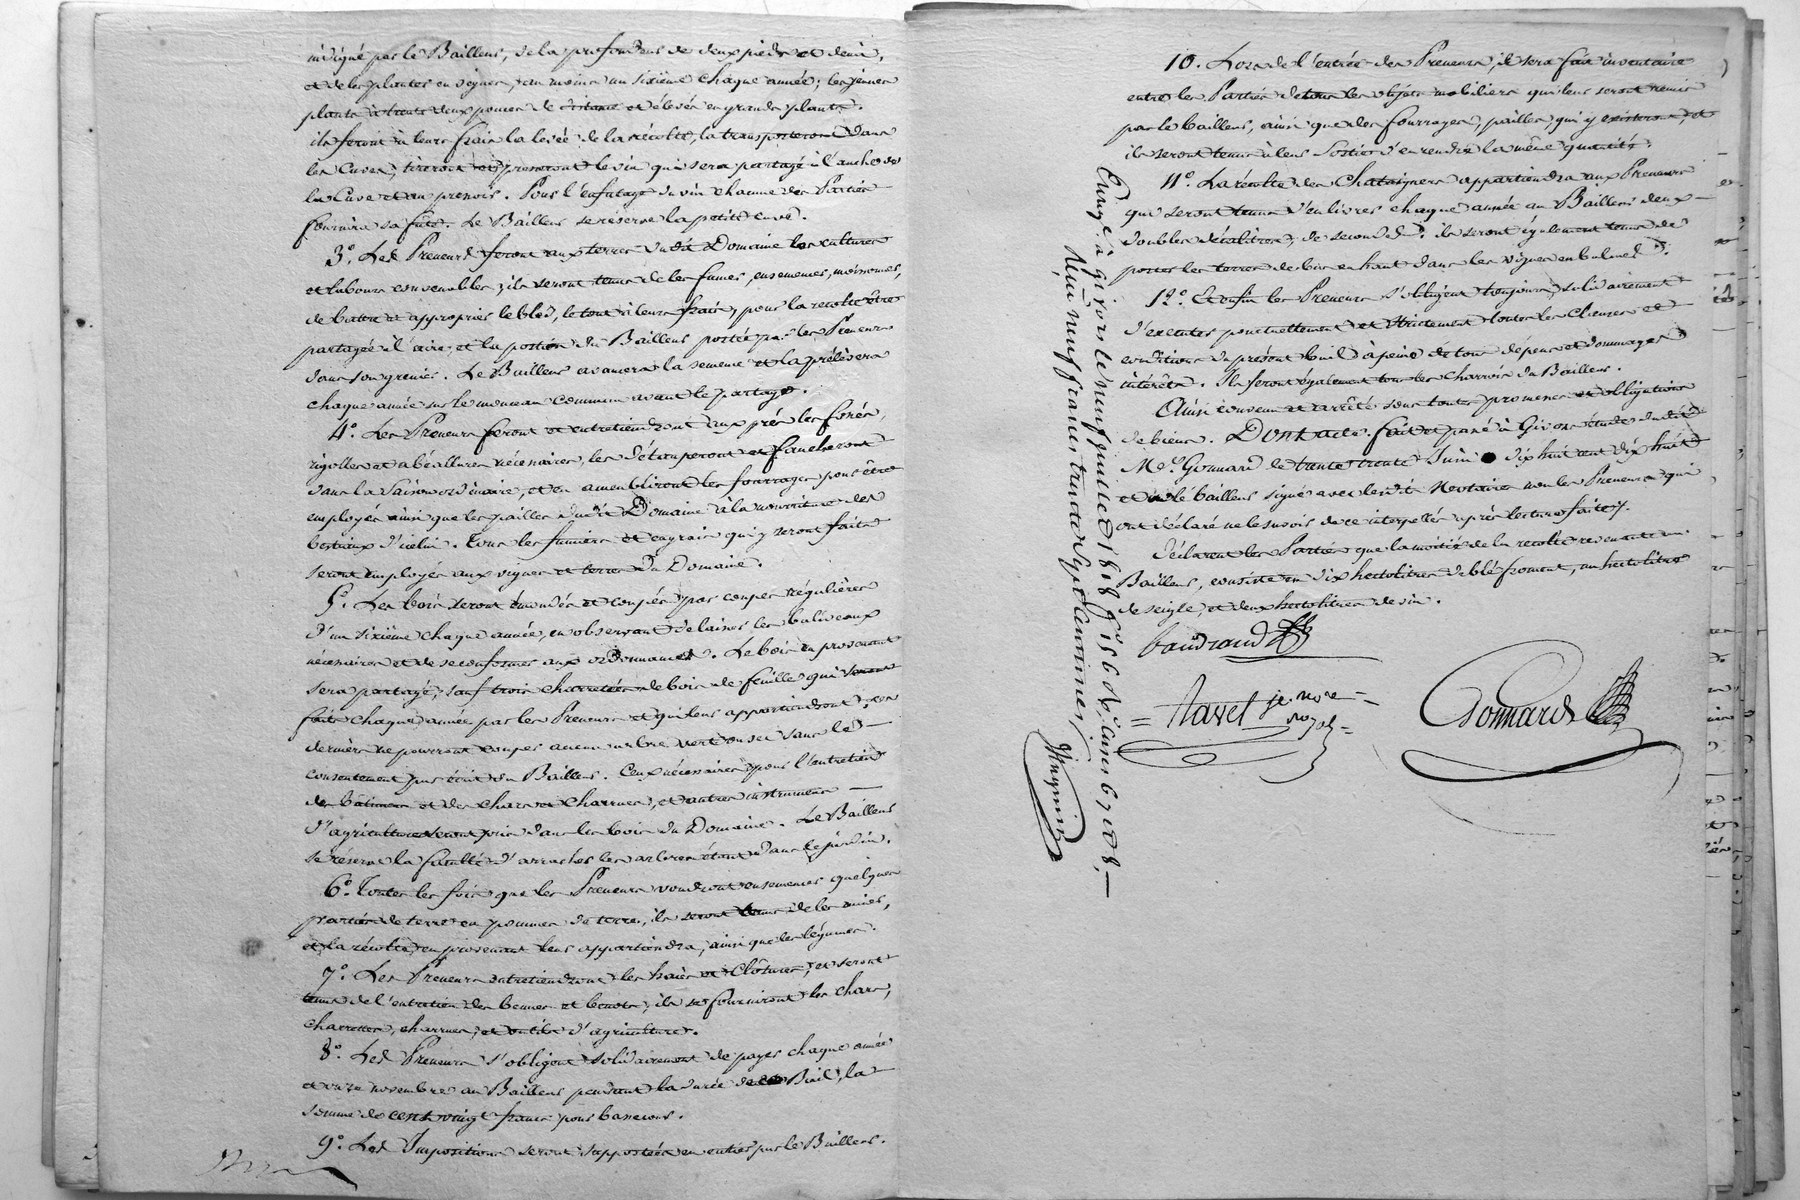 indiqué par le Bailleur, de la profondeur de deux pieds et demi,
et de les planter en vignes, au moins un sixième chaque année; les jeunes
plants à trente deux pouces de distance et élevés en grands plants.
ils feront à leurs frais la levée de la récolte, la transporteront dans
les Cuves, tireront et presseront le vin qui sera partagé à l'anche de
la Cuve et au pressoir. Pour l'enfutage du vin chacune des Parties
fournira sa futé. Le Bailleur se réserve la petite cuve.
3°. Les Preneurs feront aux terres dudit Domaine les cultures
et labours convenables; ils seront tenus de les fumer, ensemencer, moissonner,
de battre et approprier le bled, le tout à leurs frais, pour la recolte être
partagée à l'aire, et la portion du Bailleur portée par les Preneurs
dans son grenier. Le Bailleur avancera la semence et la prélèvera
chaque année sur le monceau commun avant le partage.
4°. Les Preneurs feront et entretiendront aux prés les fossés,
rigolles et abéallures nécessaires, les détauperont et faucheront
dans la Saison ordinaire, et en ameubliront les fourrages pour être
employés ainsi que les pailles dudit Domaine à la nourriture des
bestiaux d'icelui. Tous les fumiers et engrais qui y seront faits
seront employés aux vignes et terres du Domaine.
5°. Les bois seront émondés et coupés par coupes régulières
d'un sixième chaque année, en observant de laisser les baliveaux
nécessaires et de se conformer aux ordonnances. Le bois en provenant
sera partagé, sauf trois charretées de bois de feuille qui seront
faits chaque année par les Preneurs et qui leur appartiendront; ces
derniers ne pourront couper aucun arbre vert ou sec sans le
consentement par écrit du Bailleur. Ceux nécessaires pour l'entretien
des bâtimens et des chars et charrues, et autres instrumens
d'agriculture seront pris dans les bois du Domaine. Le Bailleur
se réserve la faculté d'arracher les arbres étant dans le jardin.
6°. Toutes les fois que les Preneurs voudront ensemencer quelques
parties de terre en pommes de terre, ils seront tenus de les miner,
et la récolte en provenant leur appartiendra, ainsi que les légumes.
7°. Les Preneurs entretiendront les haies et Clôtures, et seront
tenus de l'entretien des bennes et benots; ils se fourniront les chars,
charrettes, charrues, et outils d'agriculture.
8°. Les Preneurs s'obligent solidairement de payer chaque année
et onze novembre au Bailleur pendant la durée du Bail, la
somme de cent vingt francs pour bassecour.
9°. Les Impositions seront supportées en entier par le Bailleur.
10. Lors de l'entrée des Preneurs, il sera fait inventaire
entre les Parties de tous les objets mobiliers qui leur seront remis
par le bailleur, ainsi que des fourrages, pailles, qui y existeront, et
ils seront tenus à leur Sortie d'en rendre la même quantité.
11°. La récolte des Chataigners appartiendra aux Preneurs
qui seront tenus d'en livrer chaque année au Bailleur deux
doubles décalitres, de secondes. ils seront également tenus de
porter les terres de bas en haut dans les vignes
12°. Et enfin les Preneurs s'obligent toujours solidairement
d'exécuter ponctuellement et strictement toutes les Clauses et
conditions du présent bail à peine de tous dépens et dommages
intérêts. Ils feront également tous les charrois du Bailleur.
Ainsi convenu et arrêté sous toutes promesses et obligations
de biens. Dont acte. fait et passé à Givors étude dudit
Me. Gonnard le trente Juin dix huit cent dix huit
et a le bailleur signé avec lesdits Notaires non les Preneurs qui
ont déclaré ne le savoir de ce interpellés après lecture faite.
Déclarent les Parties que la moitié de la recolte revenante au
Bailleur, consiste en dix hectolitres de blé froment, un hectolitre
de seigle, et deux hectolitres de vin.
baudrand
Navel je. nore
Gonnard
Enreg. à givors le neuf juillet 1818
Reçu neuf francs trente